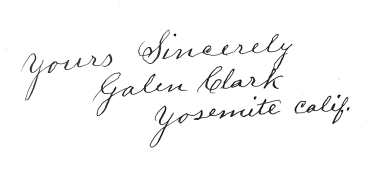 Yours Sincerely
Galen Clark
Yosemite Calif.